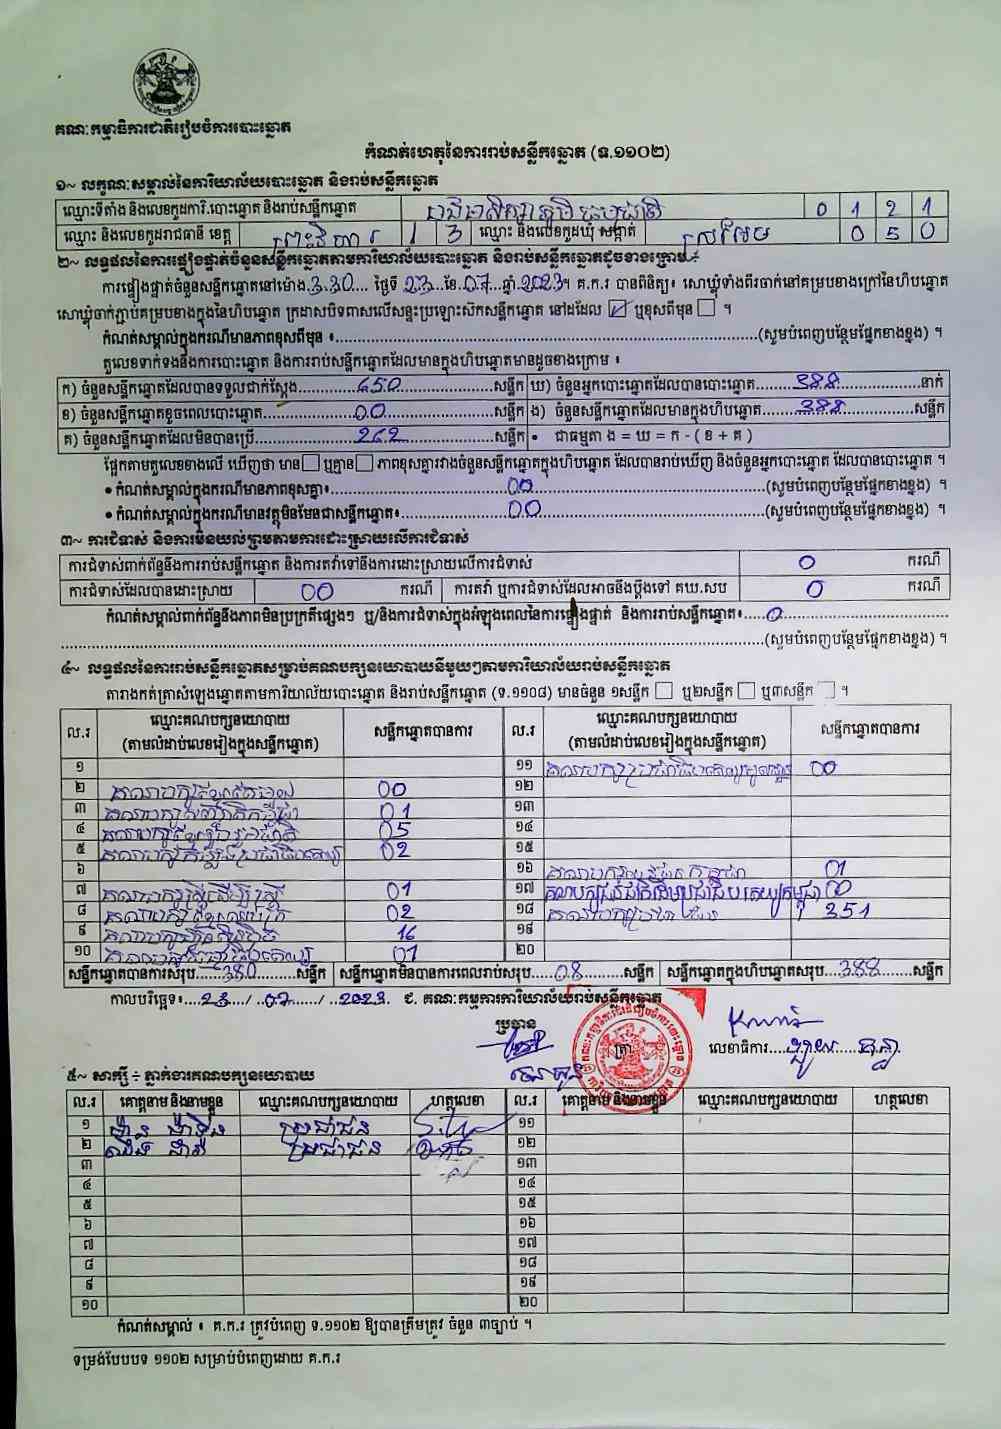 គណៈកម្មាធិការជាតិរៀបចំការបោះឆ្នោត
កំណត់ហេតុនៃការរាប់សន្លឹកឆ្នោត (ទ.១១០២)
១~ លក្ខណៈសម្គាល់នៃការិយាល័យបោះឆ្នោត និងរាប់សន្លឹកឆ្នោត
ឈ្មោះទីតាំង និងលេខកូដការិ.បោះឆ្នោត និងរាប់សន្លឹកឆ្នោត 0 1 2 1
ឈ្មោះ និងលេខកូដរាជធានី ខេត្ត ព្រះវិហារ 1 3 ឈ្មោះ និងលេខកូដឃុំ សង្កាត់ 0 5 0
២~ លទ្ធផលនៃការផ្ទៀងផ្ទាត់ចំនួនសន្លឹកឆ្នោតតាមការិយាល័យបោះឆ្នោត និងរាប់សន្លឹកឆ្នោតដូចខាងក្រោម ÷
ការផ្ទៀងផ្ទាត់ចំនួនសន្លឹកឆ្នោតនៅម៉ោង.3.30.... ថ្ងៃទី 23...ខែ.07....ឆ្នាំ.2023។ គ.ក.រ បានពិនិត្យ៖ សោឃ្លុំទាំងពីរចាក់នៅគម្របខាងក្រៅនៃហិបឆ្នោត
សោឃ្លុំចាក់ភ្ជាប់គម្របខាងក្នុងនៃហិបឆ្នោត ក្រដាសបិទពាសលើសន្ទះប្រឡោះស៊កសន្លឹកឆ្នោត នៅដដែល ☑ ឬខុសពីមុន ☐ ។
កំណត់សម្គាល់ក្នុងករណីមានភាពខុសពីមុន ៖......(សូមបំពេញបន្ថែមផ្នែកខាងខ្នង) ។
តួលេខទាក់ទងនឹងការបោះឆ្នោត និងការរាប់សន្លឹកឆ្នោតដែលមានក្នុងហិបឆ្នោតមានដូចខាងក្រោម ៖
ក) ចំនួនសន្លឹកឆ្នោតដែលបានទទួលជាក់ស្តែង......650......សន្លឹក ឃ) ចំនួនអ្នកបោះឆ្នោតដែលបានបោះឆ្នោត......388......នាក់
ខ) ចំនួនសន្លឹកឆ្នោតខូចពេលបោះឆ្នោត......00......សន្លឹក ង) ចំនួនសន្លឹកឆ្នោតដែលមានក្នុងហិបឆ្នោត......388......សន្លឹក
គ) ចំនួនសន្លឹកឆ្នោតដែលមិនបានប្រើ......262......សន្លឹក • ជាធម្មតា ង = ឃ = ក - ( ខ + គ )
ផ្អែកតាមតួលេខខាងលើ ឃើញថា មាន ☐ ឬគ្មាន ☐ ភាពខុសគ្នារវាងចំនួនសន្លឹកឆ្នោតក្នុងហិបឆ្នោត ដែលបានរាប់ឃើញ និងចំនួនអ្នកបោះឆ្នោត ដែលបានបោះឆ្នោត ។
• កំណត់សម្គាល់ក្នុងករណីមានភាពខុសគ្នា៖......00......(សូមបំពេញបន្ថែមផ្នែកខាងខ្នង) ។
• កំណត់សម្គាល់ក្នុងករណីមានវត្ថុមិនមែនជាសន្លឹកឆ្នោត៖......00......(សូមបំពេញបន្ថែមផ្នែកខាងខ្នង) ។
៣~ ការជំទាស់ និងការមិនយល់ព្រមតាមការដោះស្រាយលើការជំទាស់
ការជំទាស់ពាក់ព័ន្ធនឹងការរាប់សន្លឹកឆ្នោត និងការតវ៉ាទៅនឹងការដោះស្រាយលើការជំទាស់ 0 ករណី
ការជំទាស់ដែលបានដោះស្រាយ 00 ករណី ការតវ៉ា ឬការជំទាស់ដែលអាចនឹងប្តឹងទៅ គឃ.សប 0 ករណី
កំណត់សម្គាល់ពាក់ព័ន្ធនឹងភាពមិនប្រក្រតីផ្សេងៗ ឬ/និងការជំទាស់ក្នុងអំឡុងពេលនៃការផ្ទៀងផ្ទាត់ និងការរាប់សន្លឹកឆ្នោត៖......0......
......(សូមបំពេញបន្ថែមផ្នែកខាងខ្នង) ។
៤~ លទ្ធផលនៃការរាប់សន្លឹកឆ្នោតសម្រាប់គណបក្សនយោបាយនីមួយៗតាមការិយាល័យរាប់សន្លឹកឆ្នោត
តារាងកត់ត្រាសំឡេងឆ្នោតតាមការិយាល័យបោះឆ្នោត និងរាប់សន្លឹកឆ្នោត (ទ.១១០៨) មានចំនួន ១សន្លឹក ☐ ឬ២សន្លឹក ☐ ឬ៣សន្លឹក ☐ ។
ល.រ ឈ្មោះគណបក្សនយោបាយ (តាមលំដាប់លេខរៀងក្នុងសន្លឹកឆ្នោត) សន្លឹកឆ្នោតបានការ ល.រ ឈ្មោះគណបក្សនយោបាយ (តាមលំដាប់លេខរៀងក្នុងសន្លឹកឆ្នោត) សន្លឹកឆ្នោតបានការ
១ ១១ 00
២ 00 ១២
៣ 01 ១៣
៤ 05 ១៤
៥ 02 ១៥
៦ ១៦ 01
៧ 01 ១៧ 00
៨ 02 ១៨ 351
៩ 16 ១៩
១០ 01 ២០
សន្លឹកឆ្នោតបានការសរុប....380......សន្លឹក សន្លឹកឆ្នោតមិនបានការពេលរាប់សរុប....08....សន្លឹក សន្លឹកឆ្នោតក្នុងហិបឆ្នោតសរុប...388......សន្លឹក
កាលបរិច្ឆេទ៖...23.../..07..../...2023 ជ. គណៈកម្មការការិយាល័យរាប់សន្លឹកឆ្នោត
ប្រធាន ត្រា លេខាធិការ
៥~ សាក្សី ÷ ភ្នាក់ងារគណបក្សនយោបាយ
ល.រ គោត្តនាម និងនាមខ្លួន ឈ្មោះគណបក្សនយោបាយ ហត្ថលេខា ល.រ គោត្តនាម និងនាមខ្លួន ឈ្មោះគណបក្សនយោបាយ ហត្ថលេខា
១ ប្រជាជន ១១
២ ប្រជាជន ១២
៣ ១៣
៤ ១៤
៥ ១៥
៦ ១៦
៧ ១៧
៨ ១៨
៩ ១៩
១០ ២០
កំណត់សម្គាល់ ៖ គ.ក.រ ត្រូវបំពេញ ទ.១១០២ ឱ្យបានត្រឹមត្រូវ ចំនួន ៣ច្បាប់ ។
ទម្រង់បែបបទ ១១០២ សម្រាប់បំពេញដោយ គ.ក.រ